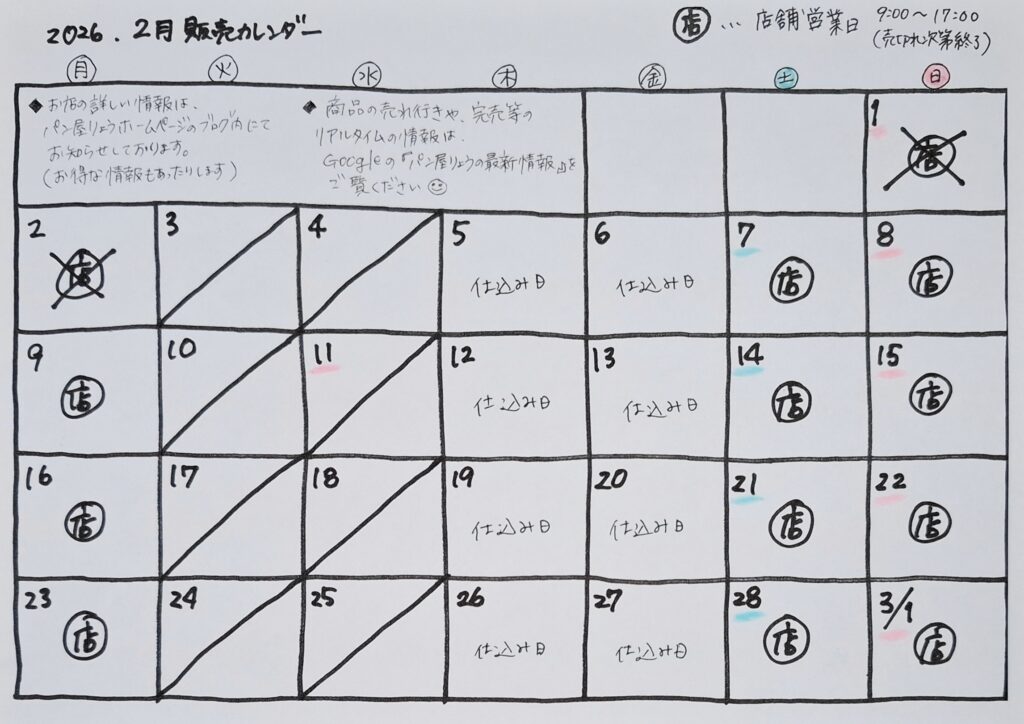 2026. 2月 販売カレンダー
店 … 店舗営業日 9:00〜17:00
(売切れ次第終了)
月 火 水 木 金 土 日
◆お店の詳しい情報は、
パン屋りょうホームページのブログ内にて
お知らせしております。
(お得な情報もあったりします)
◆商品の売れ行きや、完売等の
リアルタイムの情報は、
Googleの『パン屋りょうの最新情報』を
ご覧ください
1
店
2 3 4 5 6 7 8
店 仕込み日 仕込み日 店 店
9 10 11 12 13 14 15
店 仕込み日 仕込み日 店 店
16 17 18 19 20 21 22
店 仕込み日 仕込み日 店 店
23 24 25 26 27 28 3/1
店 仕込み日 仕込み日 店 店